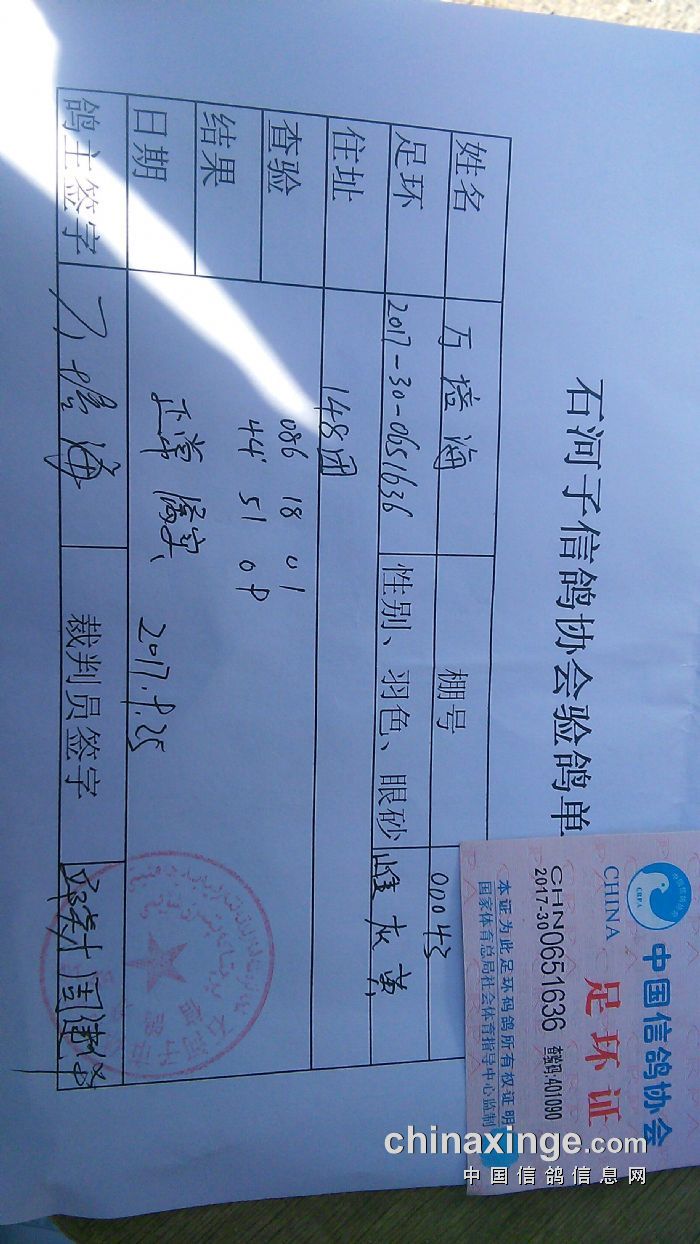 石河子信鸽协会验鸽单
姓名 万培海 棚号 00043
足环 2017-30-0651636 性别、羽色、眼砂 雌 灰 黄
住址 148团
查验 086 18 01
44 51 09
结果 正常
日期 2017.9.25
鸽主签字 万培海 裁判员签字
中国信鸽协会
CRPA
CHINA 足环证
CHN
2017-30 0651636 :401090
本证为此足环码鸽所有权证明
国家体育总局社会体育指导中心监制
chinaxinge.com
中国信鸽信息网